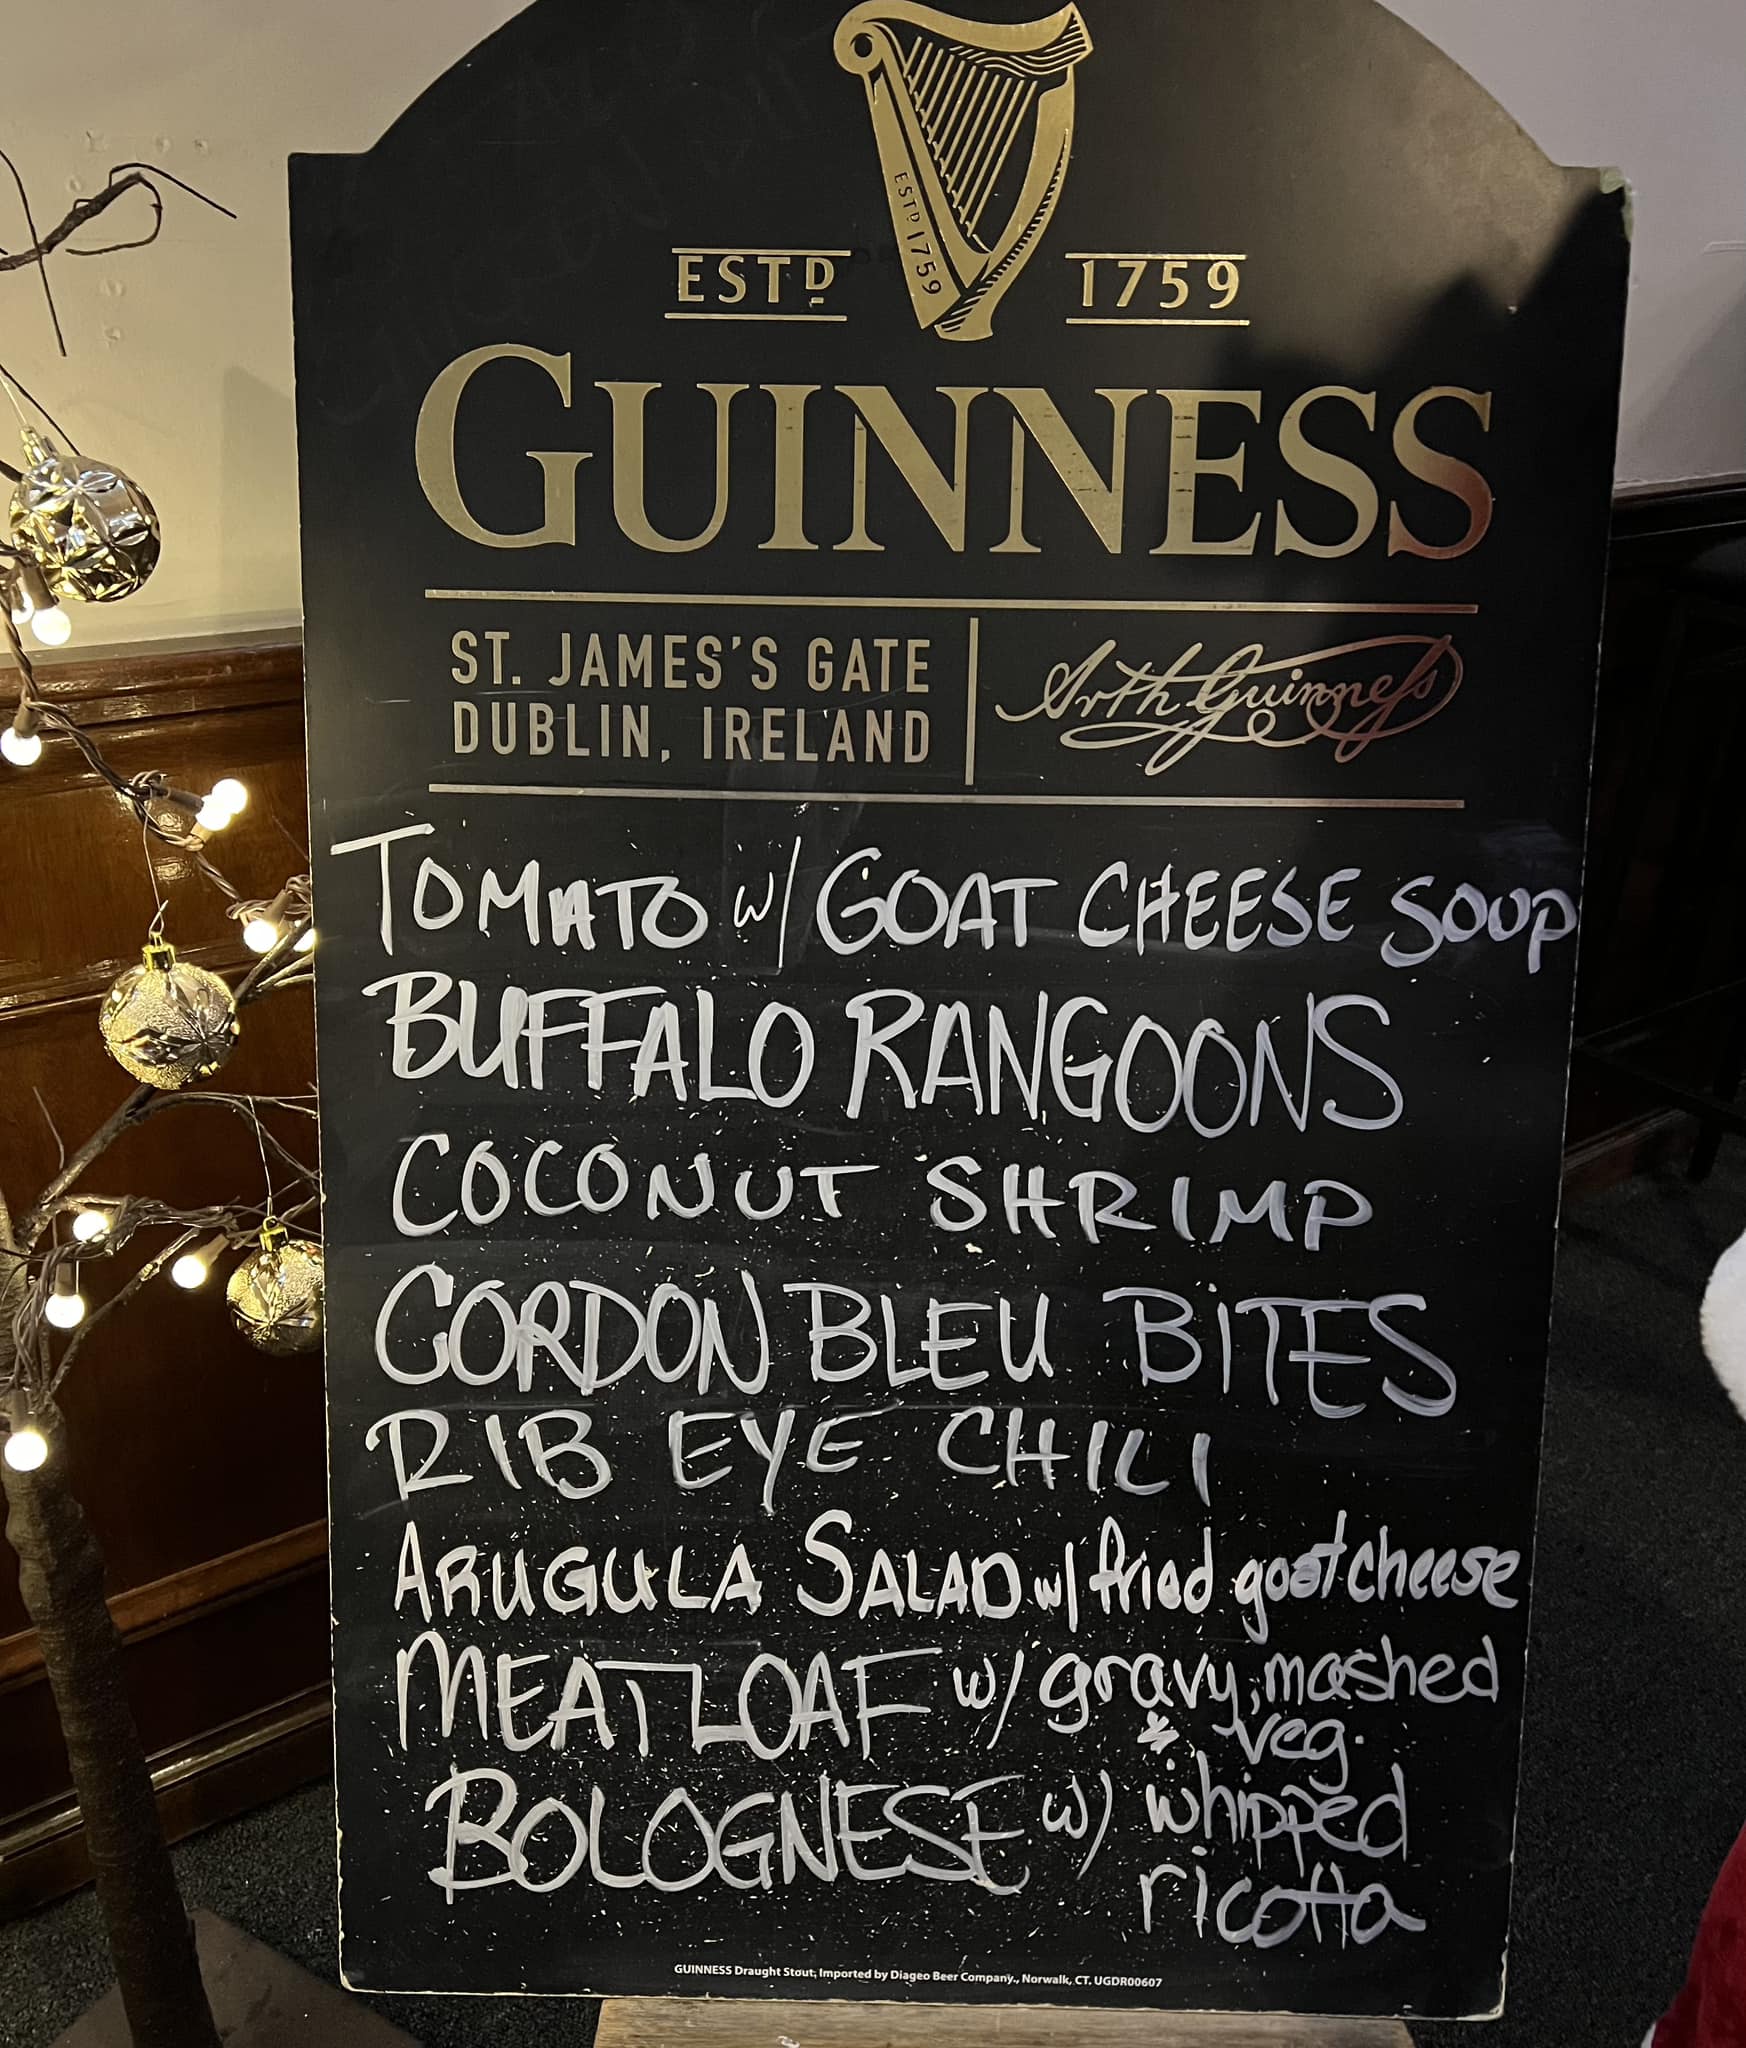 ESTD 1759
ESTD 1759
GUINNESS
ST. JAMES'S GATE
DUBLIN, IRELAND
Arth Guinness
TOMATO w/ GOAT CHEESE SOUP
BUFFALO RANGOONS
COCONUT SHRIMP
CORDON BLEU BITES
RIB EYE CHILI
ARUGULA SALAD w/ fried goat cheese
MEATLOAF w/ gravy, mashed
& veg.
BOLOGNESE w/ whipped
ricotta
GUINNESS Draught Stout, Imported by Diageo Beer Company., Norwalk, CT. UGDR00607